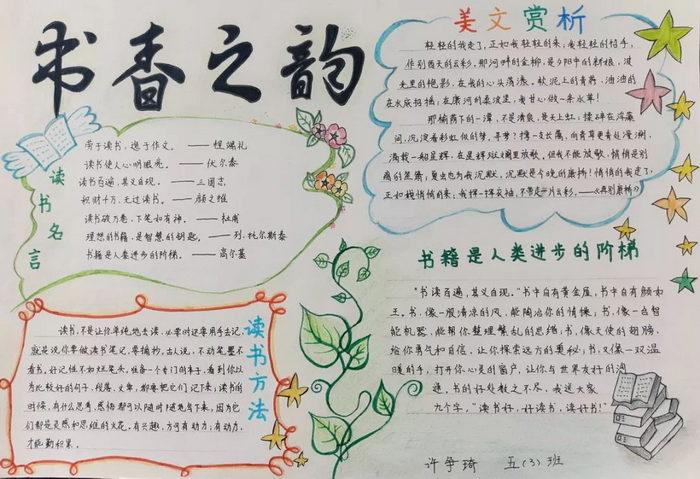 书香之韵
读书名言
劳于读书,逸于作文。——程端礼
读书使人心明眼亮。——伏尔泰
读书百遍,其义自现。——三国志
积财千万,无过读书。——颜之推
读书破万卷,下笔如有神。——杜甫
理想的书籍,是智慧的钥匙。——列·托尔斯泰
书籍是人类进步的阶梯。——高尔基
美文赏析
轻轻的我走了,正如我轻轻的来,我轻轻的招手,
作别西天的云彩。那河畔的金柳,是夕阳中的新娘,波
光里的艳影,在我的心头荡漾。软泥上的青荇,油油的
在水底招摇;在康河的柔波里,我甘心做一条水草!
那榆荫下的一潭,不是清泉,是天上虹;揉碎在浮藻
间,沉淀着彩虹似的梦。寻梦?撑一支长篙,向青草更青处漫溯,
满载一船星辉,在星辉斑斓里放歌。但我不能放歌,悄悄是别
离的笙箫;夏虫也为我沉默,沉默是今晚的康桥!悄悄的我走了,
正如我悄悄的来;我挥一挥衣袖,不带走一片云彩。——《再别康桥》
读书方法
读书,不是让你单纯地去读,必要时还要用手去记,
就是说你要做读书笔记,要摘抄。古人说,不动笔墨不
看书,好记性不如烂笔头,准备一个专门的本子,看到你以
为比较好的句子,段落,文章,都要把它们记下来;读书的
时候,有什么思考,感悟都可以随时随地写下来,因为它
们都是灵感和思维的火花。有兴趣,方可有动力;有动力,
才能勤积累。
书籍是人类进步的阶梯
“书读百遍,其义自现。”书中自有黄金屋,书中自有颜如
玉。书,像一股清凉的风,能陶冶你的情操;书,像一台智
能机器,能帮你整理繁乱的思绪;书,像天使的翅膀,
给你勇气和自信,让你探索远方的奥秘;书又像一双温
暖的手,打开你心灵的窗户,让你与世界友好的沟
通。书的好处数之不尽,我送大家
九个字,“读书好,好读书,读好书!”
许争琦 五(3)班